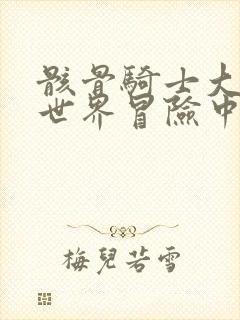 骸骨騎士大
世界冒險中
梅兒若雪